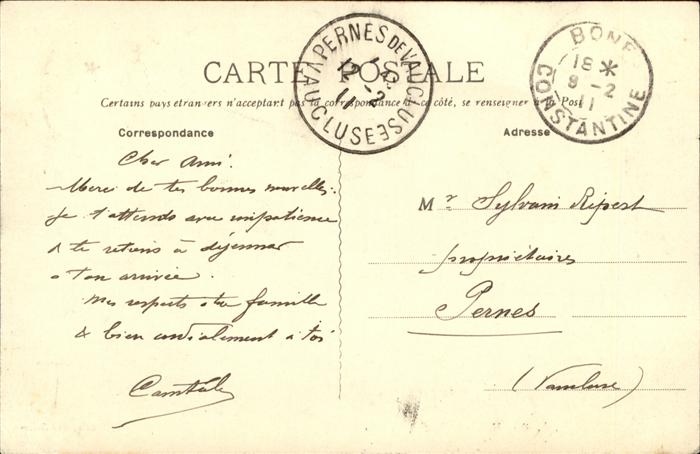 CARTE POSTALE
Certains pays étrangers n'acceptant pas la correspondance de ce côté, se renseigner à la Poste
Correspondance
Adresse
PERNES DE VAUCLUSE
VAUCLUSE
12-2
11
BONE
18 *
9-2
11
CONSTANTINE
Cher Ami.
Merci de tes bonnes nouvelles.
je t'attends avec impatience
& te retiens à déjeuner
a ton arrivée.
Mes respects à ta famille
& bien cordialement à toi
Mr Sylvain Ripert
propriétaires
Pernes
(Vaucluse)